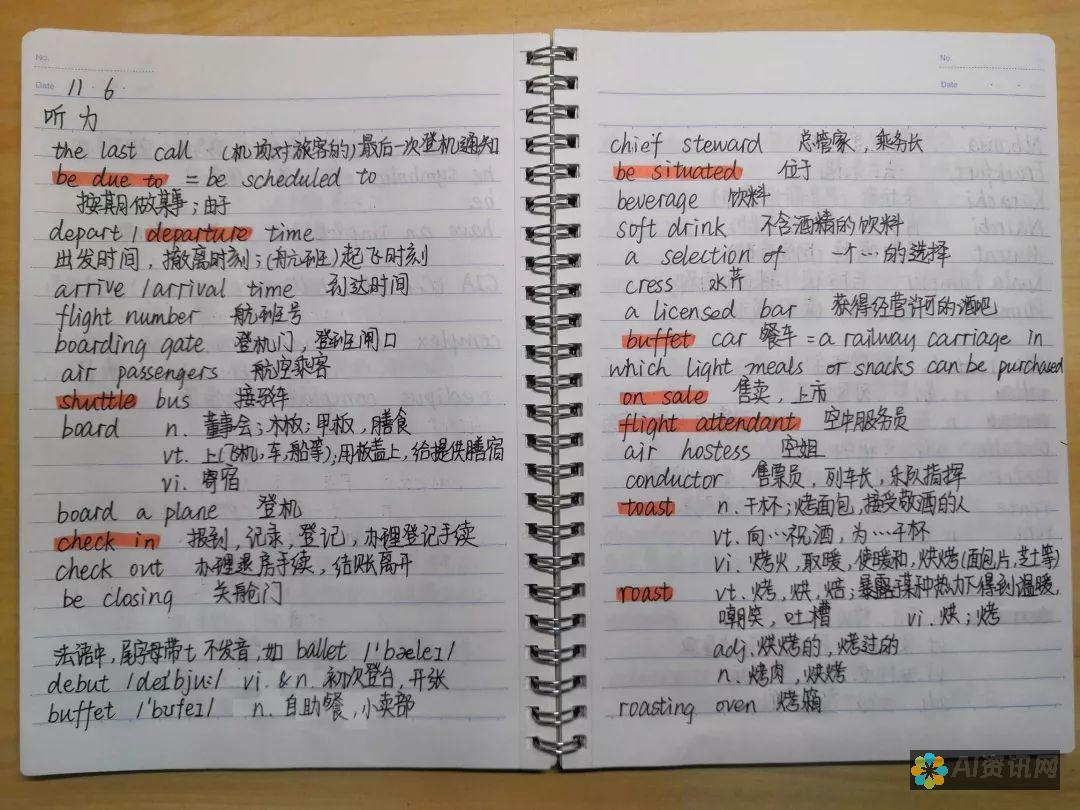 No.
Date 11 · 6
听力
the last call (机场对旅客的)最后一次登机通知
be due to = be scheduled to
按期做某事；由于
depart / departure time
出发时间，撤离时刻；(航班)起飞时刻
arrive / arrival time 到达时间
flight number 航班号
boarding gate 登机门，登班闸口
air passengers 航空乘客
shuttle bus 接驳车
board n. 董事会；木板；甲板，膳食
vt. 上(飞机，车，船等)；用板盖上，给提供膳宿
vi. 寄宿
board a plane 登机
check in 报到，记录，登记，办理登记手续
check out 办理退房手续，结账离开
be closing 关舱门
法语中，尾字母带t 不发音，如 ballet /'bæleɪ/
debut /deɪbju:/ vi. & n. 初次登台，开张
buffet /'bʊfeɪ/ n. 自助餐，小卖部
No.
Date
chief steward 总管家，乘务长
be situated 位于
beverage 饮料
soft drink 不含酒精的饮料
a selection of 一个…的选择
cress 水芹
a licensed bar 获得经营许可的酒吧
buffet car 餐车 = a railway carriage in
which light meals or snacks can be purchased
on sale 售卖，上市
flight attendant 空中服务员
air hostess 空姐
conductor 售票员，列车长，乐队指挥
toast n. 干杯；烤面包，接受敬酒的人
vt. 向…祝酒，为…干杯
vi. 烤火，取暖，使暖和，烘烤(面包片，芝士等)
roast vt. 烤，烘，焙；暴露于某种热力下得到温暖，
嘲笑，吐槽 vi. 烘；烤
adj. 烘烤的，烤过的
n. 烤肉，烘烤
roasting oven 烤箱
AI资讯网